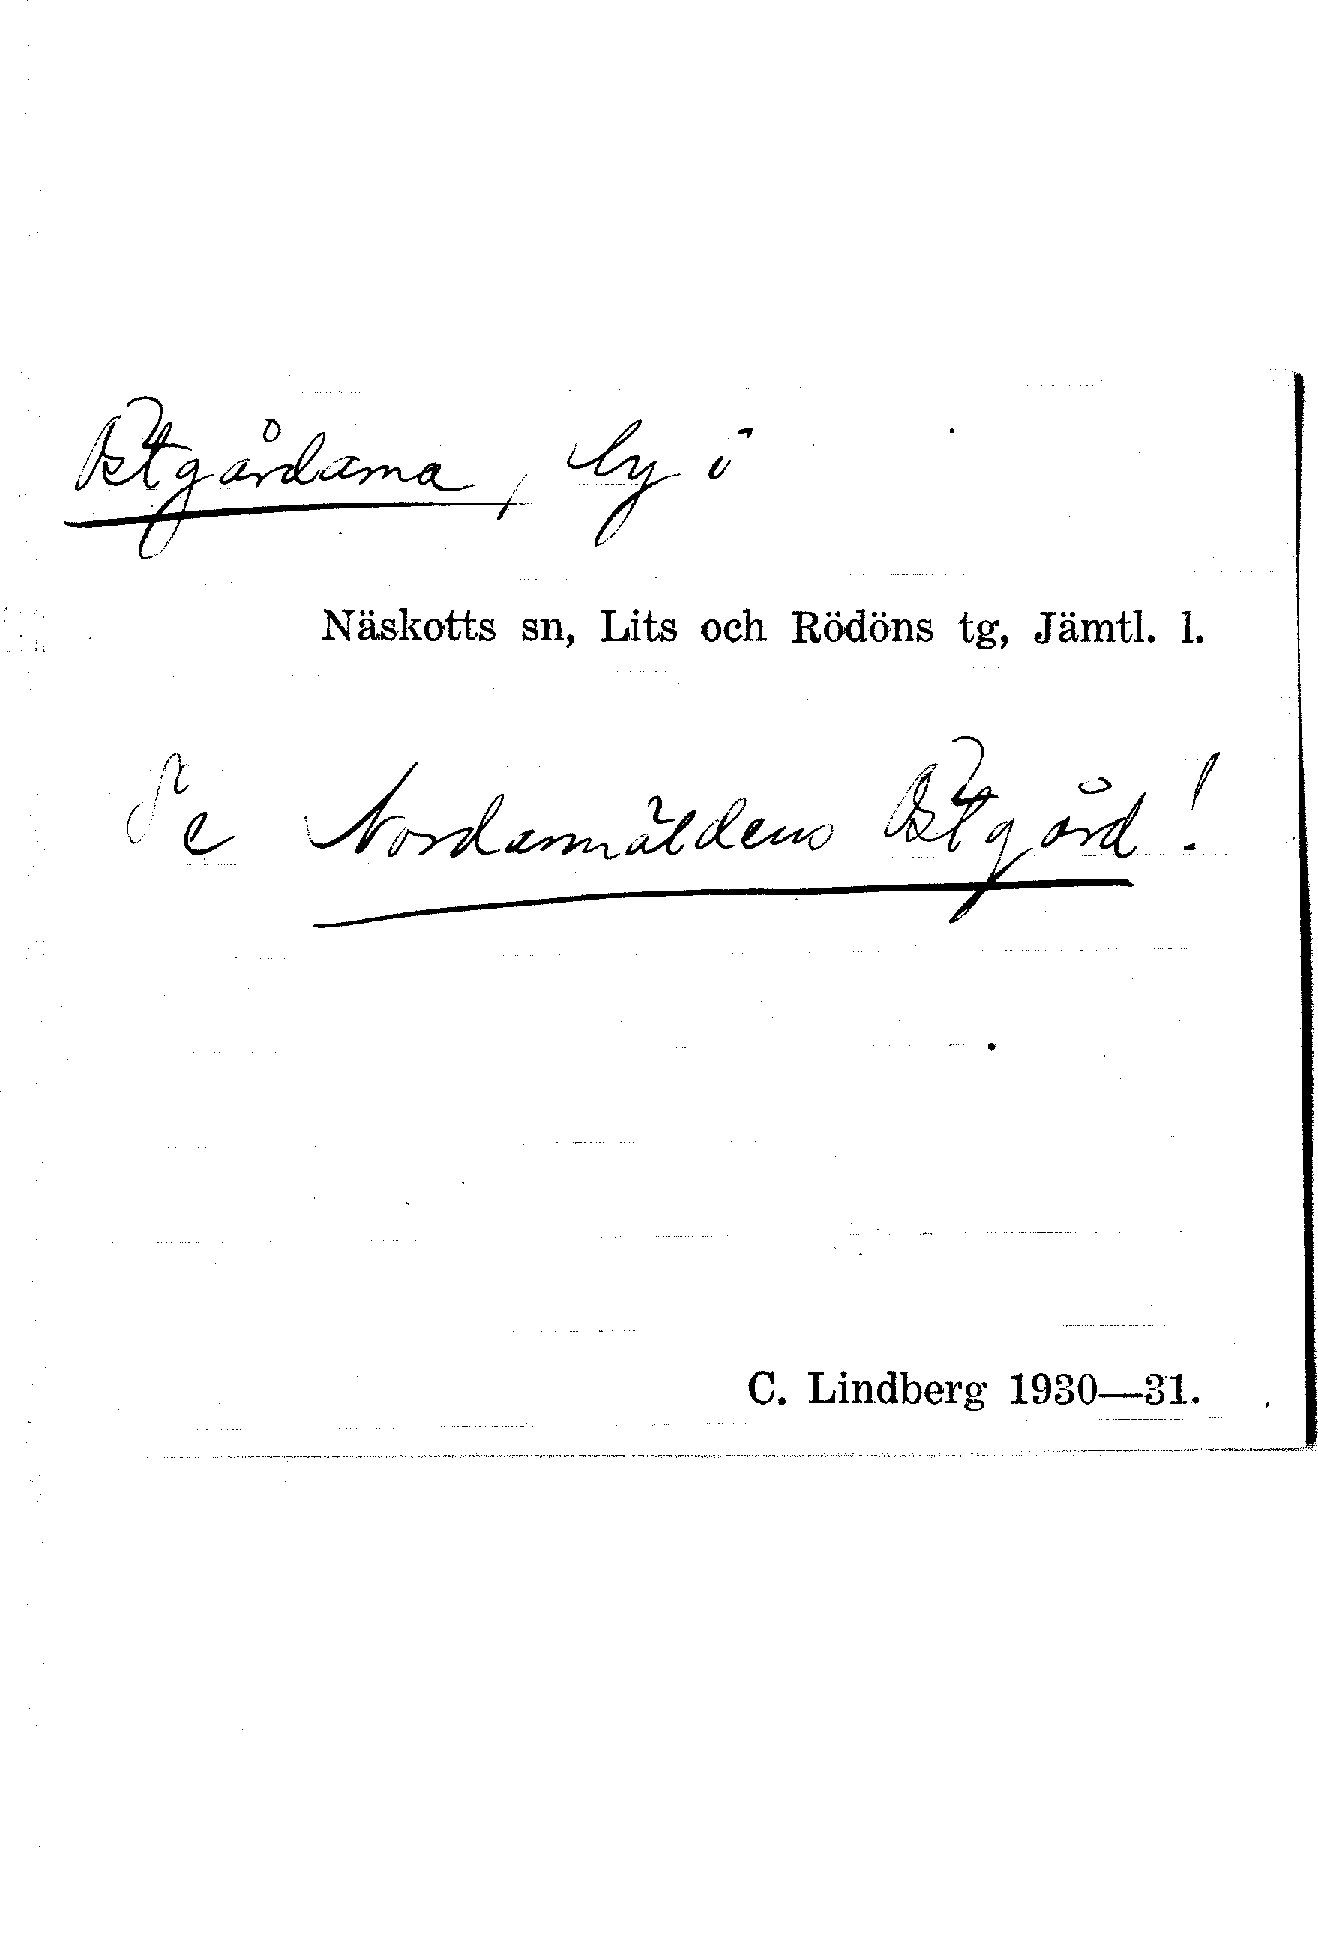 Östgårdarna, by i
Näskotts sn, Lits och Rödöns tg, Jämtl. l.
Se Nordannäldens Östgård!
C. Lindberg 1930—31.